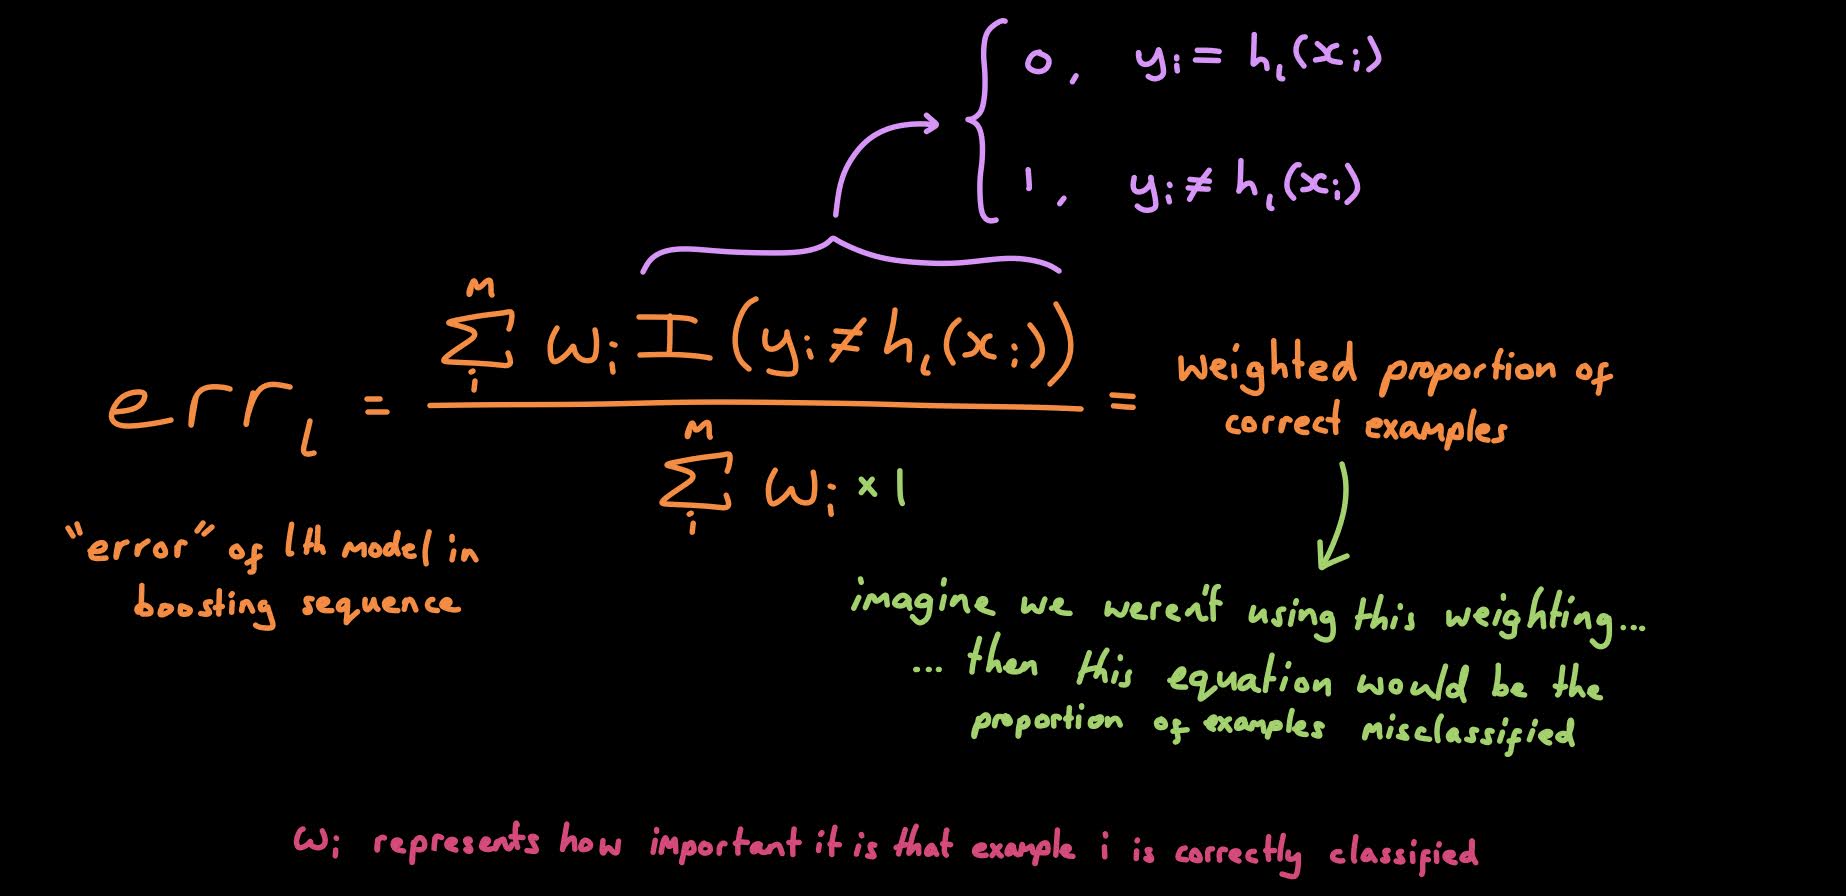 0, yᵢ = hₗ(xᵢ)
1, yᵢ ≠ hₗ(xᵢ)
errₗ = \frac{\sum_{i}^{M} ωᵢ I(yᵢ ≠ hₗ(xᵢ))}{\sum_{i}^{M} ωᵢ × 1} = weighted proportion of
correct examples
"error" of lth model in
boosting sequence
imagine we weren't using this weighting...
... then this equation would be the
proportion of examples misclassified
ωᵢ represents how important it is that example i is correctly classified